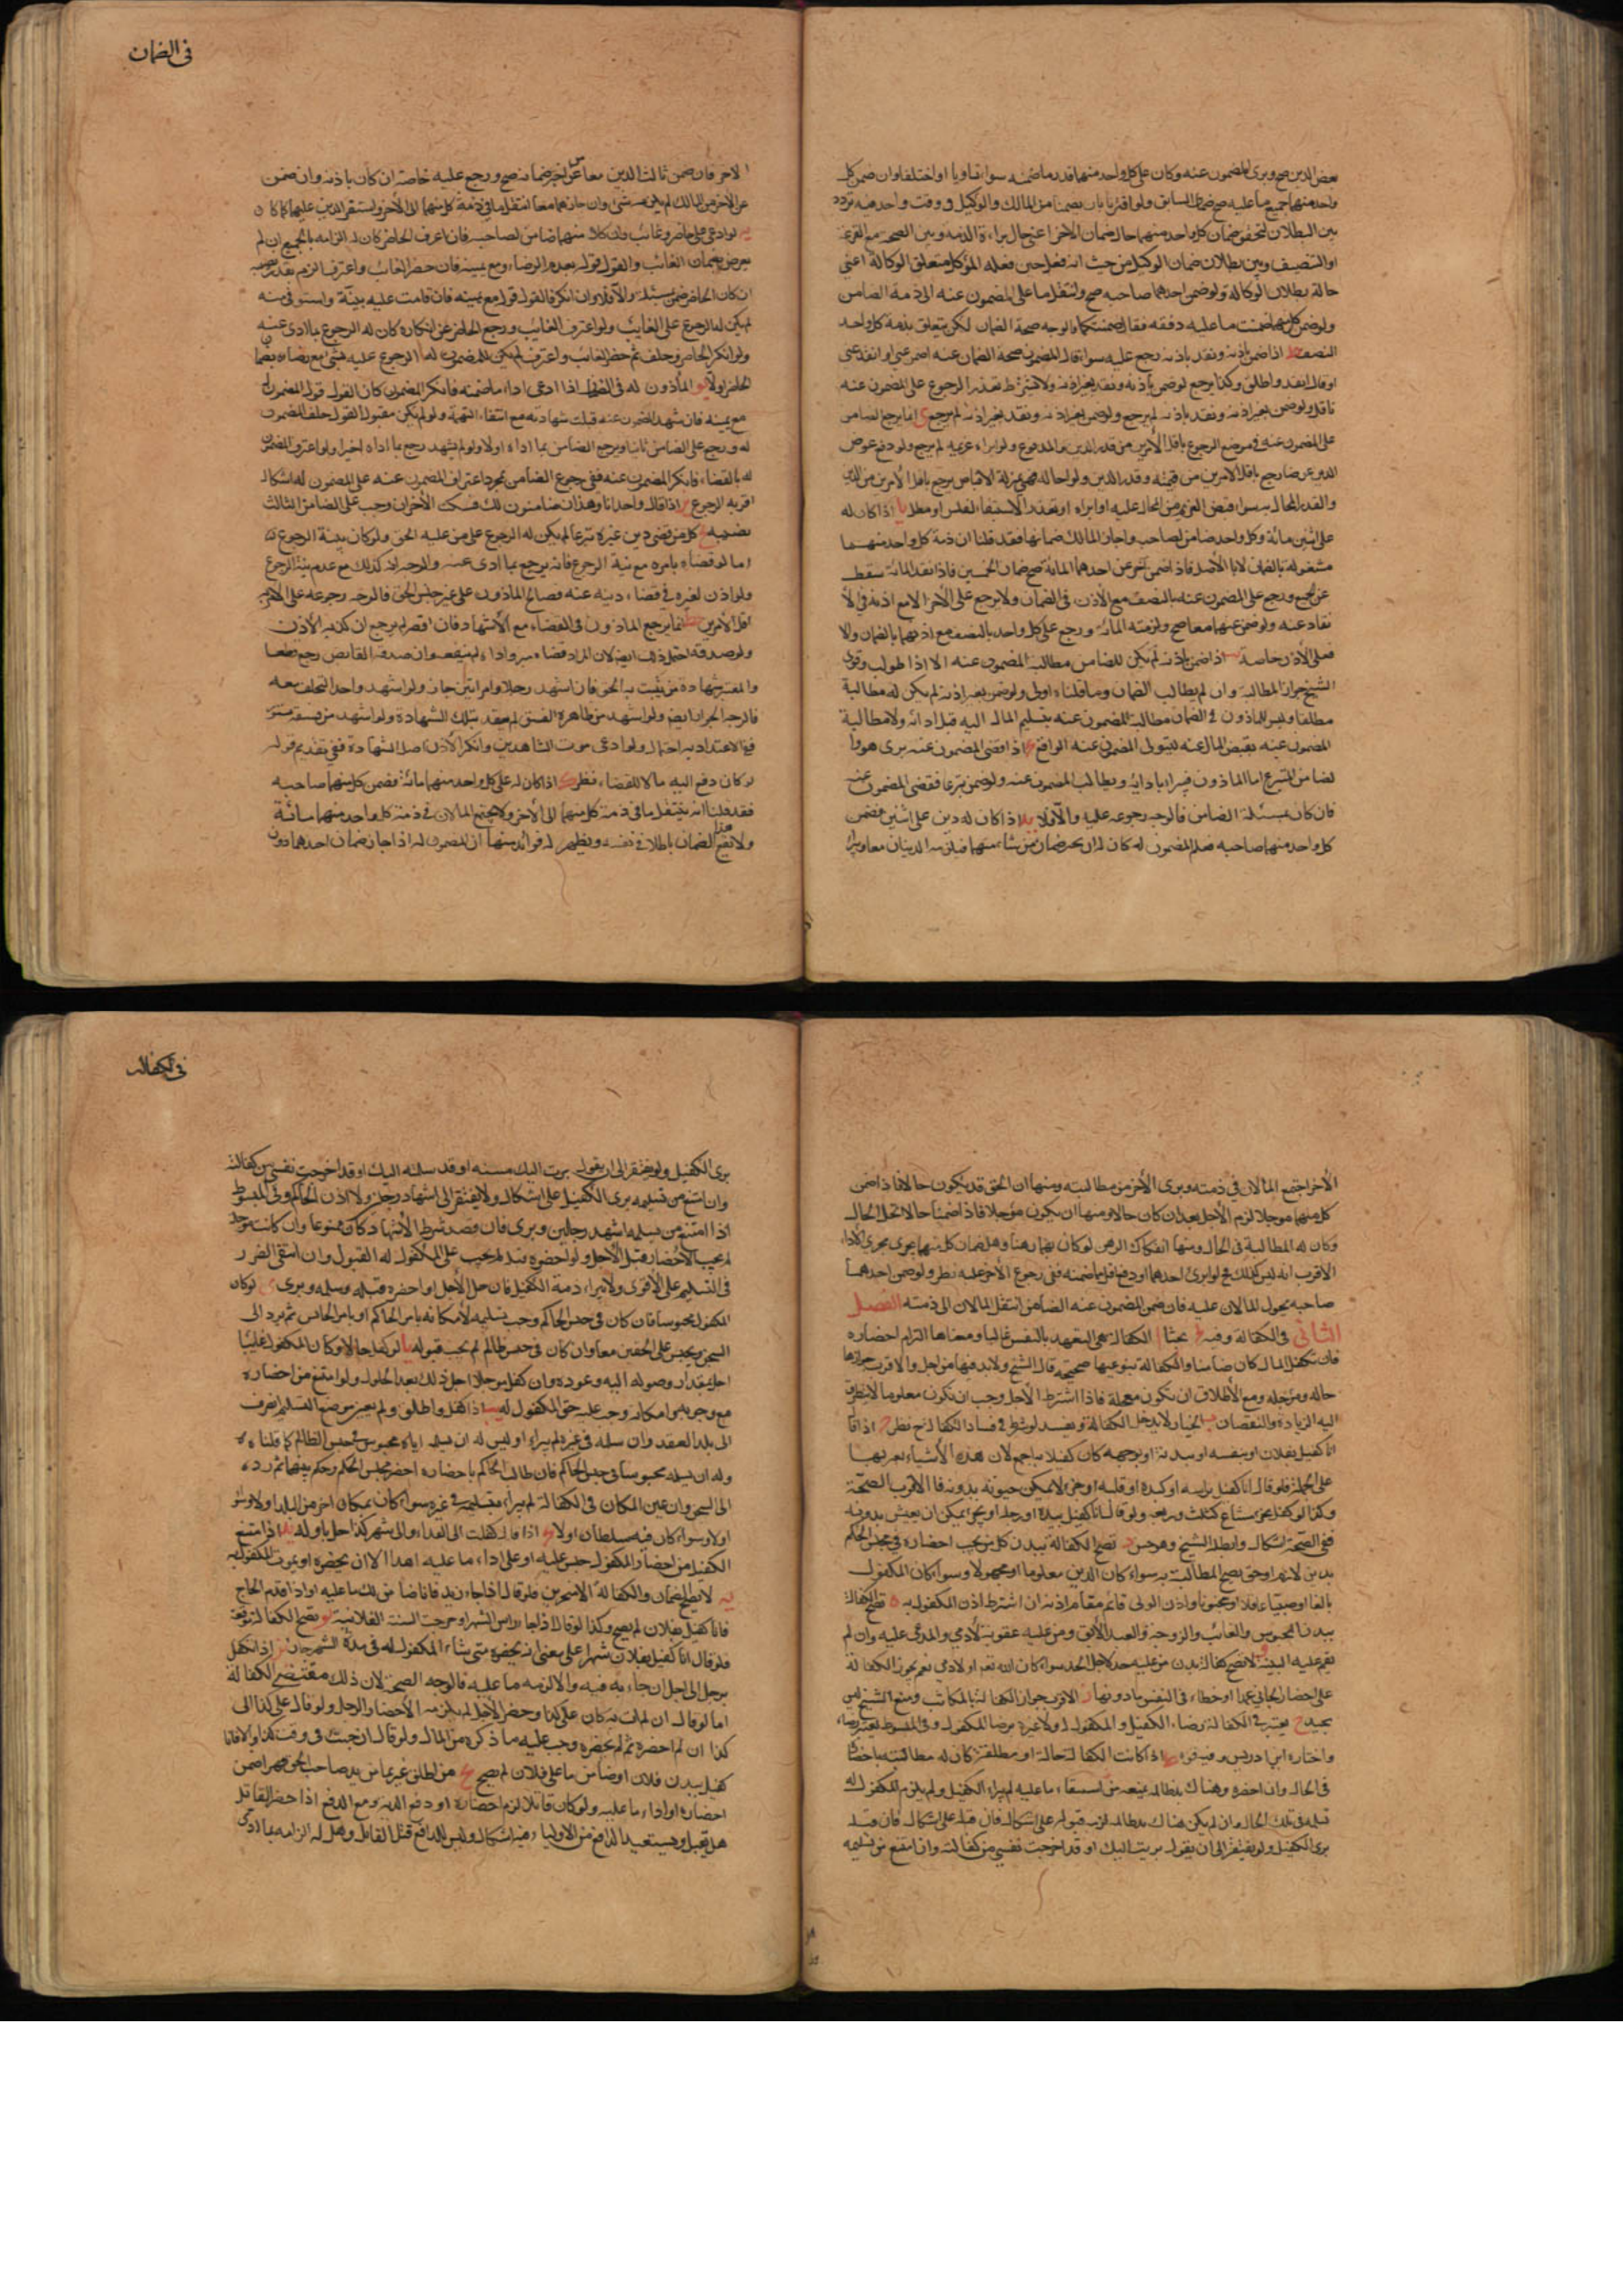 بعض الدين صح وبرئ المضمون عنه وكان على كل واحد منهما قدر ما ضمنه سواء تساويا او اختلفا وان ضمن كل
واحد منهما جميع ما عليه صح ضمان السابق ولو اقترنا بان يضمنا من المالك والوكيل في وقت واحد ففيه تردد
بين البطلان لتحقق ضمان كل واحد منهما حال ضمان الاخر اعني حال براءة الذمة وبين الصحة مع القرعة
او التنصيف وبين بطلان ضمان الوكيل من حيث انه فعل حين فعله الموكل متعلق الوكالة اعني
حالة بطلان الوكالة ولو ضمن احدهما صاحبه صح وانتقل ما على المضمون عنه الى ذمة الضامن
ولو ضمن كل ما عليه دفعة فقال ضمنتكما فالوجه صحة الضمان لكن يتعلق بذمة كل واحد
النصف ط اذا ضمن باذنه ونقد باذنه رجع عليه سواء قال المضمون عنه اضمن عني او انقد عني
او قال انقد واطلق وكذا يرجع لو ضمن باذنه ونقد بغير اذنه ولا يشترط تعذر الرجوع على المضمون عنه
ولو ضمن بغير اذنه ونقد باذنه لم يرجع ولو ضمن بغير اذنه ونقد بغير اذنه لم يرجع ى انما يرجع الضامن
على المضمون عنه في موضع الرجوع باقل الامرين من قدر الدين والمدفوع ولو ابراه غريمه لم يرجع ولو دفع عوض
الدين عرضا رجع باقل الامرين من قيمته وقدر الدين ولو احاله فهي بمنزلة الاقباض يرجع باقل الامرين من الدين
والقدر المحال به سواء قبض الغريم من المحال عليه او ابراه او تعذر الاستيفاء لفلس او مطل يا اذا كان له
على اثنين مائة وكل واحد ضامن لصاحبه واجاز المالك ضمانهما فقد قلنا ان ذمة كل واحد منهما
مشغولة بالضمان لا بالاصل فاذا ضمن اخر عن احدهما المائة صح ضمان الخمسين فاذا نقد المائة سقط
عن الجميع ورجع على المضمون عنه بالنصف مع الاذن في الضمان ولا يرجع على الاخر الا مع اذنه في
عنه ولو ضمن عنهما معا صح ولزمته المائة ورجع على كل واحد بالنصف مع اذنهما بالضمان والا
فعلى الاذن خاصة يب اذا ضمن باذنه لم يكن للضامن مطالبة المضمون عنه الا اذا طولب وقوى
الشيخ جواز المطالبة وان لم يطالب الضمان وما قلناه اولى ولو ضمن بغير اذنه لم يكن له مطالبة
مطلقا وليس للماذون في الضمان مطالبة المضمون عنه بتسليم المال اليه قبل ادائه ولا مطالبة
المضمون عنه بقبض المال عنه ليتولى المضمون عنه الوافع يج اذا قضى المضمون عنه برئ هو وا
لضامن المتبرع اما الماذون فيبرا بادائه ويطالب المضمون عنه ولو ضمن تبرعا فقضى المضمون عنه
فان كان بمسئلة الضامن فالوجه رجوعه عليه والا فلا يد اذا كان له دين على اثنين فضمن
كل واحد منهما صاحبه فعلم المضمون له كان له ان يجيز ضمان من شاء منهما فيلزمه الدينان معا ويبرا
في الضمان
الاخر فان ضمن ثالث الدين معا عن ضمانه صح ورجع عليه خاصة ان كان باذنه وان ضمن
عن الاخر من المالك لم يكن شئ وان اجازهما معا انتقل ما في ذمة كل منهما الى الاخر واستقر الدين عليهما كما كان
يه لو ادعى على حاضر وغائب وان كلا منهما ضامن لصاحبه فان اعترف الحاضر كان له الزامه بالجميع ان لم
يعرض بضمان الغائب والقول قوله بعدم الرضاء ومع يمينه فان حضر الغائب واعترف الزم بقدر نصيبه
ان كان الحاضر ضمن بمسئلته والا فلا وان انكر فالقول قوله مع يمينه فان قامت عليه بينة واستوفى منه
لم يكن له الرجوع على الغائب ولو اعترف الغائب ورجع الحاضر عن انكاره كان له الرجوع بما ادى عنه
ولو انكر الحاضر وحلف ثم حضر الغائب واعترف لم يكن للمضمون له الرجوع عليه بشئ مع رضاه بضمان
الحاضر اولا يو الماذون له في الضمان اذا ادعى اداء ما ضمنه فانكر المضمون كان القول قول المضمون
مع يمينه فان شهد المضمون عنه قبلت شهادته مع انتفاء التهمة ولو لم يكن مقبول القول حلف المضمون
له ورجع على الضامن ثانيا ويرجع الضامن بما اداه اولا ولو لم يشهد رجع بما اداه اخيرا ولو اعترف المضمون
له بالقضاء فانكر المضمون عنه ففي رجوع الضامن بمجرد اعتراف المضمون عنه على المضمون له اشكال
اقربه الرجوع يز اذا قال واحد انا وهذان ضامنون لك فسكت الاخران وجب على الضامن الثالث
يح كل من قضى دين غيره تبرعا لم يكن له الرجوع على من عليه الحق ولو كان بنية الرجوع
اما لو قضاه بامره مع نية الرجوع فانه يرجع بما ادى عنه والوجه انه كذلك مع عدم نية الرجوع
ولو اذن لغيره في قضاء دينه عنه فصالح الماذون على غير جنس الحق فالوجه رجوعه على الامر
باقل الامرين يط انما يرجع الماذون في القضاء مع الاشهاد فان اقصر لم يرجع ان كذبه الاذن
ولو صدقه احتمل ذلك ايضا لان المراد قضاء مبرئ واداء لم ينفعه وان صدقه القابض رجع قطعا
والمعتبر شهادة من يثبت به الحق فان اشهد رجلا وامراتين جاز ولو اشهد واحدا لتحلف معه
فالوجه الجواز ايضا ولو اشهد من ظاهره الفسق لم يعتد بتلك الشهادة ولو اشهد من فسقه مستتر
ففي الاعتداد به احتمال ولو ادعى موت الشاهدين وانكر الاذن اصل الشهادة ففي تقديم قوله
لو كان دفع اليه مالا للقضاء نظر ك اذا كان له على كل واحد منهما مائة فضمن كل منهما صاحبه
فقد قلنا انه ينتقل ما في ذمة كل منهما الى الاخر ولا يجتمع المالان في ذمة كل واحد منهما مائة
ولا يقع هذا الضمان باطلا في نفسه ويظهر له فوائد منها ان المضمون له اذا اجاز ضمان احدهما دون
الاخر اجتمع المالان في ذمته وبرئ الاخر من مطالبته ومنها ان الحق قد يكون حالا فاذا ضمن
كل منهما موجلا لزم الاجل بعد ان كان حالا ومنها ان يكون موجلا فاذا ضمنا حالا انحل الحال
وكان له المطالبة في الحال ومنها انفكاك الرهن لو كان بضمان هنا وهل ضمان كل منهما يجرى مجرى الاداء
الاقرب انه ليس كذلك فلو ابرئ احدهما او دفع اقل مما ضمنه ففي رجوع الاخر عليه نظر ولو ضمن احدهما
صاحبه تحول المالان عليه فان ضمن المضمون عنه الضامن انتقل المالان الى ذمته الفصل
الثاني في الكفالة وفيه يح بحثا ا الكفالة هي التعهد بالنفس غالبا ومعناها التزام احضاره
فان تكفل المال كان ضامنا والكفالة بنوعيها صحيحة قال الشيخ ولا بد فيها من اجل والاقرب جوازها
حالة وموجله ومع الاطلاق ان تكون معجلة فاذا اشترط الاجل وجب ان تكون معلوما لا يتطرق
اليه الزيادة والنقصان ب الخيار لا يدخل الكفالة ويفسد لو شرط وفي فساد الكفالة ح نظر ج اذا قال
انا كفيل بفلان او بنفسه او ببدنه او بوجهه كان كفيلا به اجمع لان هذه الاشياء يعبر بها
على الجملة فلو قال انا كفيل براسه او كبده او قلبه او جزء لا يمكن حيوته بدونه فالاقرب الصحة
وكذا لو كفل بجزء مشاع كثلث وربعه ولو قال انا كفيل بيده او رجله او بجزء يمكن ان يعيش بدونه
ففي الصحة اشكال وابطله الشيخ وهو حسن د تصح الكفالة ببدن كل من يجب احضاره في مجلس الحكم
بدين لازم او حق يصح المطالبة به سواء كان الدين معلوما او مجهولا وسواء كان المكفول
بالغا او صبيا عاقلا او مجنونا واذن الولى قائم مقام اذنه ان اشترط اذن المكفول به ه تصح الكفالة
ببدن المحبوس والغائب والزوجة والعبد الابق ومن عليه عقوبة لادمي والمدعى عليه وان لم
تقم عليه البينة و لا تصح كفالة بدن من عليه حد لاجل الحد سواء كان لله تعالى او لادمي نعم يجوز الكفالة
على احضار الجاني عمدا او خطاء في النفس وما دونها ز الاقرب جواز الكفالة بالمكاتب ومنع الشيخ ليس
بجيد ح يعتبر في الكفالة رضاء الكفيل والمكفول له ولا عبرة برضا المكفول وفي المبسوط يعتبر رضاه
واختاره ابن ادريس وفيه قوة ط اذا كانت الكفالة حالة او مطلقة كان له مطالبته باحضاره
في الحال وان احضره وهناك يد ظالمة يمنعه من استيفاء ما عليه لم يبرا الكفيل ولم يلزم المكفول له
تسلمه في تلك الحال وان لم يكن هناك يد ظالمة لزمه قبوله على اشكال فان قبله على اشكال فان قبله
برئ الكفيل ولو يفتقر الى ان يقول برئت اليك او قد اخرجت نفسي من كفالته وان امتنع من تسليمه
في الكفالة
برئ الكفيل ولو يفتقر الى ان يقول برئت اليك منه او قد سلمته اليك او قد اخرجت نفسي من كفالته
وان امتنع من تسليمه برئ الكفيل على اشكال ولا يفتقر الى اشهاد رجلين ولا اذن الحاكم وفي المبسوط
اذا امتنع من تسليمه اشهد رجلين وبرئ فان قصد شرط الاشهاد كان ممنوعا وان كانت موجلة
لم يجب الاحضار قبل الاجل ولو احضره قبله لم يجب على المكفول له القبول وان انتفى الضرر
في التسليم على الاقوى ولا تبراء ذمة الكفيل فان حل الاجل او احضره قبله وسلمه وبرئ ى لو كان
المكفول محبوسا فان كان في حبس الحاكم وجب تسليمه لامكانه بامر الحاكم او بامر الحابس ثم يرد الى
السجن ويحبس على الحقين معا وان كان في حبس ظالم لم يجب قبوله يا لو كفل حالا وكان المكفول غايبا
اجل بمقدار وصوله اليه وعوده وان كفل موجلا اجل ذلك بعد الحلول ولو امتنع من احضاره
مع وجوبه وامكانه وجب عليه حق المكفول له يب اذا كفل واطلق ولم يعين موضع التسليم انصرف
الى بلد العقد وان سلمه في غيره لم يبراء وليس له ان يسلمه اياه محبوس في حبس الظالم كما قلناه
وله ان يسلمه محبوسا في حبس الحاكم فان طالب الحاكم باحضاره احضر مجلس الحكم وحكم بينهما ثم رده
الى السجن وان عين المكان في الكفالة لم يبراء بتسليمه في غيره سواء كان بمكان اخر من البلد او لا وسواء
اولا وسواء كان فيه سلطان اولا يج اذا قال كفلت الى الغداء والى شهر كذا حل باوله يد اذا امتنع
الكفيل من احضار المكفول حبس عليه او على اداء ما عليه ابدا الا ان يحضره او يموت المكفول به
يه لا يصح الضمان والكفالة الا منجزين فلو قال اذا جاء زيد فانا ضامن لك ما عليه او اذا قدم الحاج
فانا كفيل بفلان لم يصح وكذا لو قال اذا جاء راس الشهر او خرجت السنة الفلانية يو تصح الكفالة موقتة
فلو قال انا كفيل بفلان شهرا على معنى انه يحضره متى شاء المكفول له في مدة الشهر جاز يز اذا تكفل
برجل الى اجل ان جاء به فيه والا لزمه ما عليه فالوجه الصحة لان ذلك مقتضى الكفالة
اما لو قال ان لم ات به كان على كذا وحضر الاجل لم يلزمه الا الاحضار والرجل ولو قال على كذا الى
كذا ان لم احضره ثم لم يحضره وجب عليه ما ذكره من المال ولو قال ان جئت في وقت كذا والا فانا
كفيل ببدن فلان او ضامن ما على فلان لم يصح يح من اطلق غريما من يد صاحب الحق قهرا ضمن
احضاره او اداء ما عليه ولو كان قاتلا لزم احضاره او دفع الدية ومع الدفع اذا حضر القاتل
هل يقبل ويستعيد الدافع من الاولياء فيه اشكال وليس للدافع قتل القاتل وهل له الزامه بما ادى